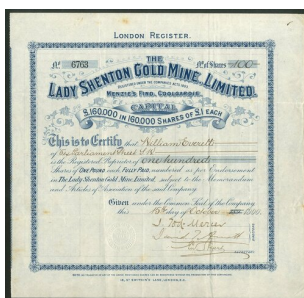 LONDON REGISTER.
No. 6763
No. of Shares 100
THE
LADY SHENTON GOLD MINE LIMITED.
MENZIE'S FIND, COOLGARDIE.
CAPITAL
£160,000 IN 160000 SHARES OF £1 EACH
This is to Certify that William Everett
of
is the Registered Proprietor of One hundred
Shares of ONE POUND each FULLY PAID, numbered as per Endorsement
in The Lady Shenton Gold Mine Limited, subject to the Memorandum
and Articles of Association of the said Company
Given under the Common Seal of the Company
this day of October